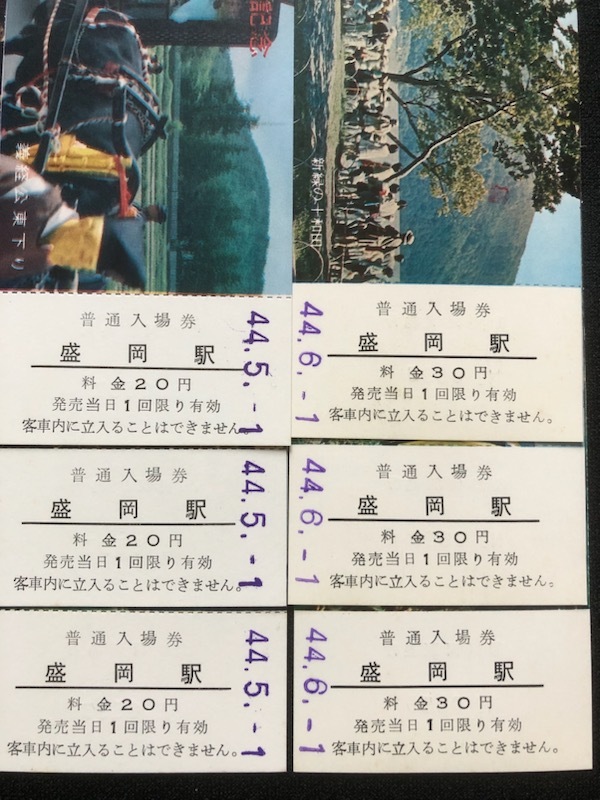 記念
義経公東下り
新緑の十和田
普通入場券
盛岡駅
料金20円
発売当日1回限り有効
客車内に立入ることはできません。
44.5.-1
普通入場券
盛岡駅
料金30円
発売当日1回限り有効
客車内に立入ることはできません。
44.6.-1
普通入場券
盛岡駅
料金20円
発売当日1回限り有効
客車内に立入ることはできません。
44.5.-1
普通入場券
盛岡駅
料金30円
発売当日1回限り有効
客車内に立入ることはできません。
44.6.-1
普通入場券
盛岡駅
料金20円
発売当日1回限り有効
客車内に立入ることはできません。
44.5.-1
普通入場券
盛岡駅
料金30円
発売当日1回限り有効
客車内に立入ることはできません。
44.6.-1